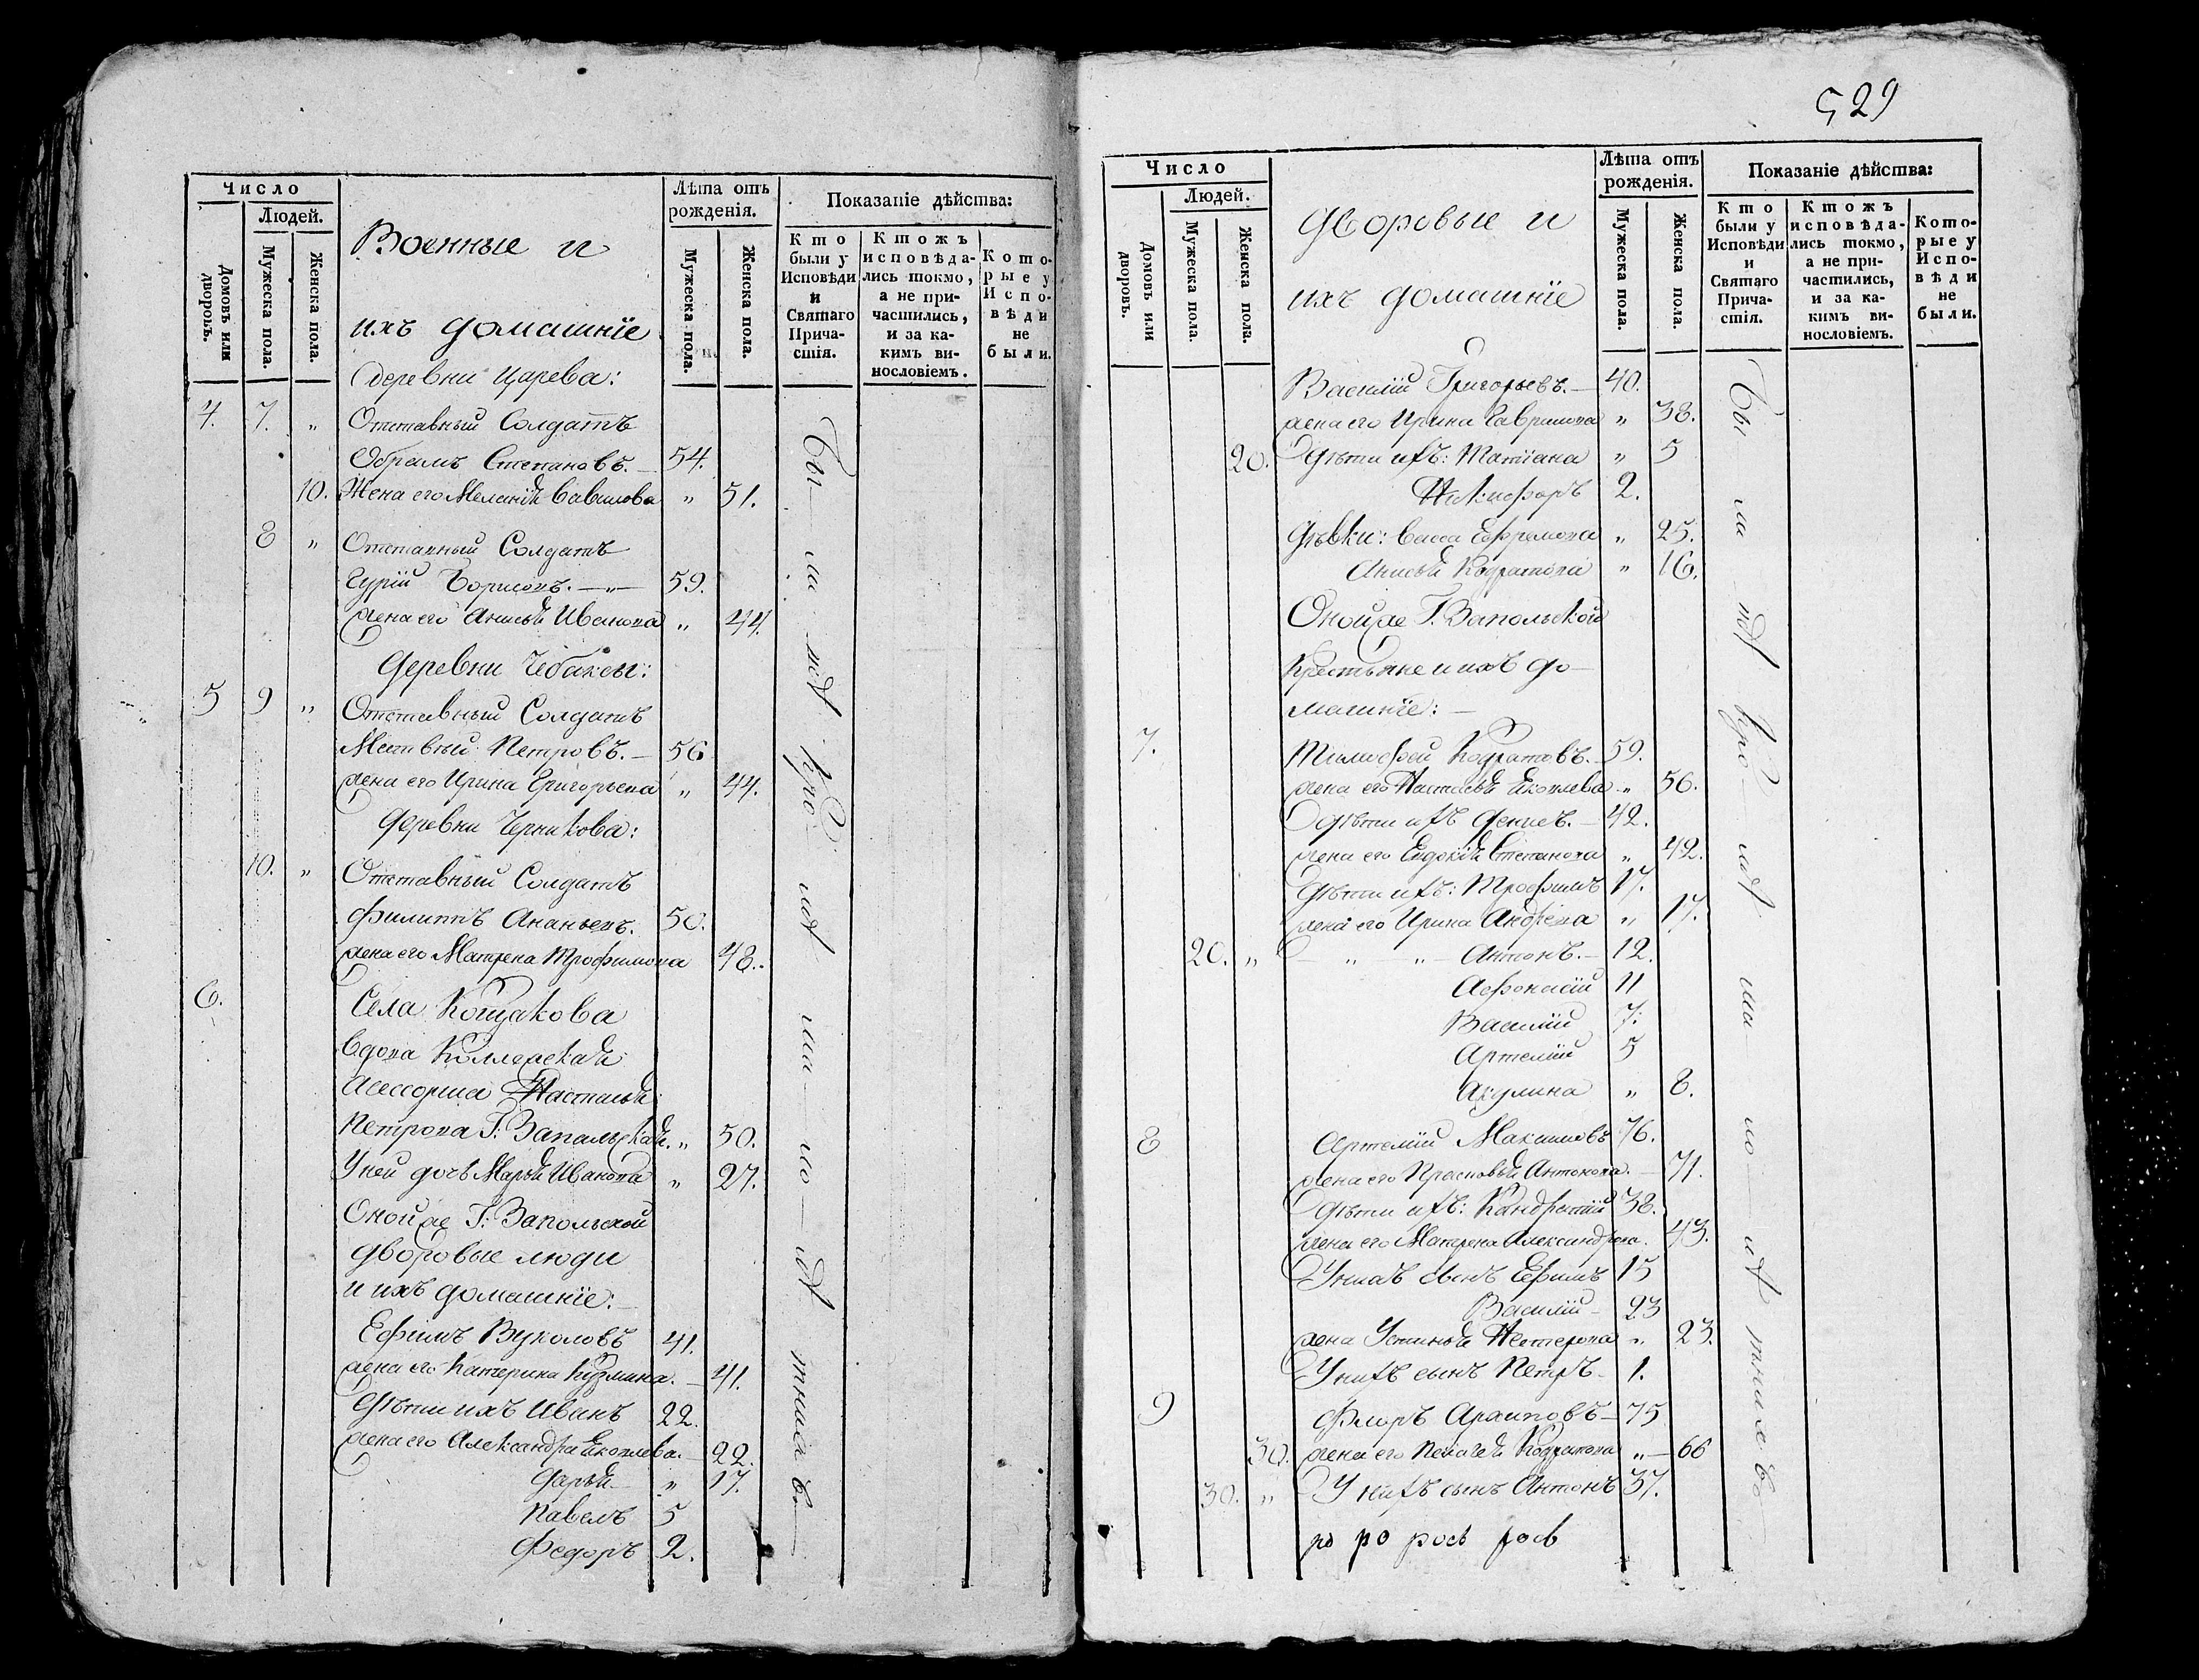 Число
Людей.
Домовъ или дворовъ.
Мужеска пола.
Женска пола.
Военные и
ихъ домашнїе
Лѣта отъ рожденія.
Мужеска пола.
Женска пола.
Показаніе дѣйства:
Кто были у Исповѣди и Святаго Причастія.
Ктожъ исповѣдались токмо, а не причастились, и за какимъ винословіемъ.
Которые у Исповѣди не были.
деревни Царева:
4. 7. „ Отставный Солдатъ
Обрамъ Степановъ. 54.
10. Жена его Меланія Савилова „ 51.
8 „ Отставный Солдатъ
Гурій Борисовъ. 59.
жена его Анисья Иванова „ 44.
деревни Чебаксы:
5 9 „ Отставный Солдатъ
Матвѣй Петровъ. 56
жена его Ирина Григорьева „ 44.
деревни Черникова:
10. „ Отставный Солдатъ
Филиппъ Ананьевъ. 50.
жена его Матрена Трофимова 48.
6. Села Кощакова
вдова Коллежская
Асессорша Настасья
Петрова Г: Запольская. „ 50.
У ней дочь Марья Иванова „ 27.
Оной же Г: Запольской
дворовые люди
и ихъ домашніе:
Ефимъ Вуколовъ 41.
жена его Катерина Кузмина. 41.
Дѣти ихъ Иванъ 22.
жена его Александра Яковлева. 22.
Дарья „ 17.
Павелъ 5
Федоръ 2.
529
Число
Людей.
Домовъ или дворовъ.
Мужеска пола.
Женска пола.
дворовые и
ихъ домашнїе
Лѣта отъ рожденія.
Мужеска пола.
Женска пола.
Показаніе дѣйства:
Кто были у Исповѣди и Святаго Причастія.
Ктожъ исповѣдались токмо, а не причастились, и за какимъ винословіемъ.
Которые у Исповѣди не были.
Василій Григорьевъ. 40.
жена его Ирина Гаврилова „ 38.
20. Дѣти ихъ: Татіана „ 5
Никифоръ 2.
Дѣвки: Васса Ефремова „ 25.
Анисья Кодратова „ 16.
Оной же Г. Запольской
крестьяне и ихъ до-
машніе:
7. Тимофей Кодратовъ. 59.
жена его Настасья Яковлева „ 56.
Дѣти ихъ Денисъ. 42.
жена его Евдокія Степанова „ 42.
Дѣти ихъ: Трофимъ 17.
жена его Ирина Андрева „ 17.
20. „ „ „ Антонъ. 12.
Афонасій 11
Василій 7.
Артемій 5
Акулина „ 8.
8 Артемій Максимовъ 76.
жена его Прасковья Антонова. 71.
Дѣти ихъ: Кандратій 38.
жена его Матрена Александрова. 43.
У нихъ сынъ Ефимъ 15
Василій 23
жена Устинья Нестерова „ 23.
У нихъ сынъ Петръ 1.
9 Флоръ Архиповъ 75
30. жена его Пелагея Кодратова „ 66
30. „ У нихъ сынъ Антонъ 37.
ро ро рось рось